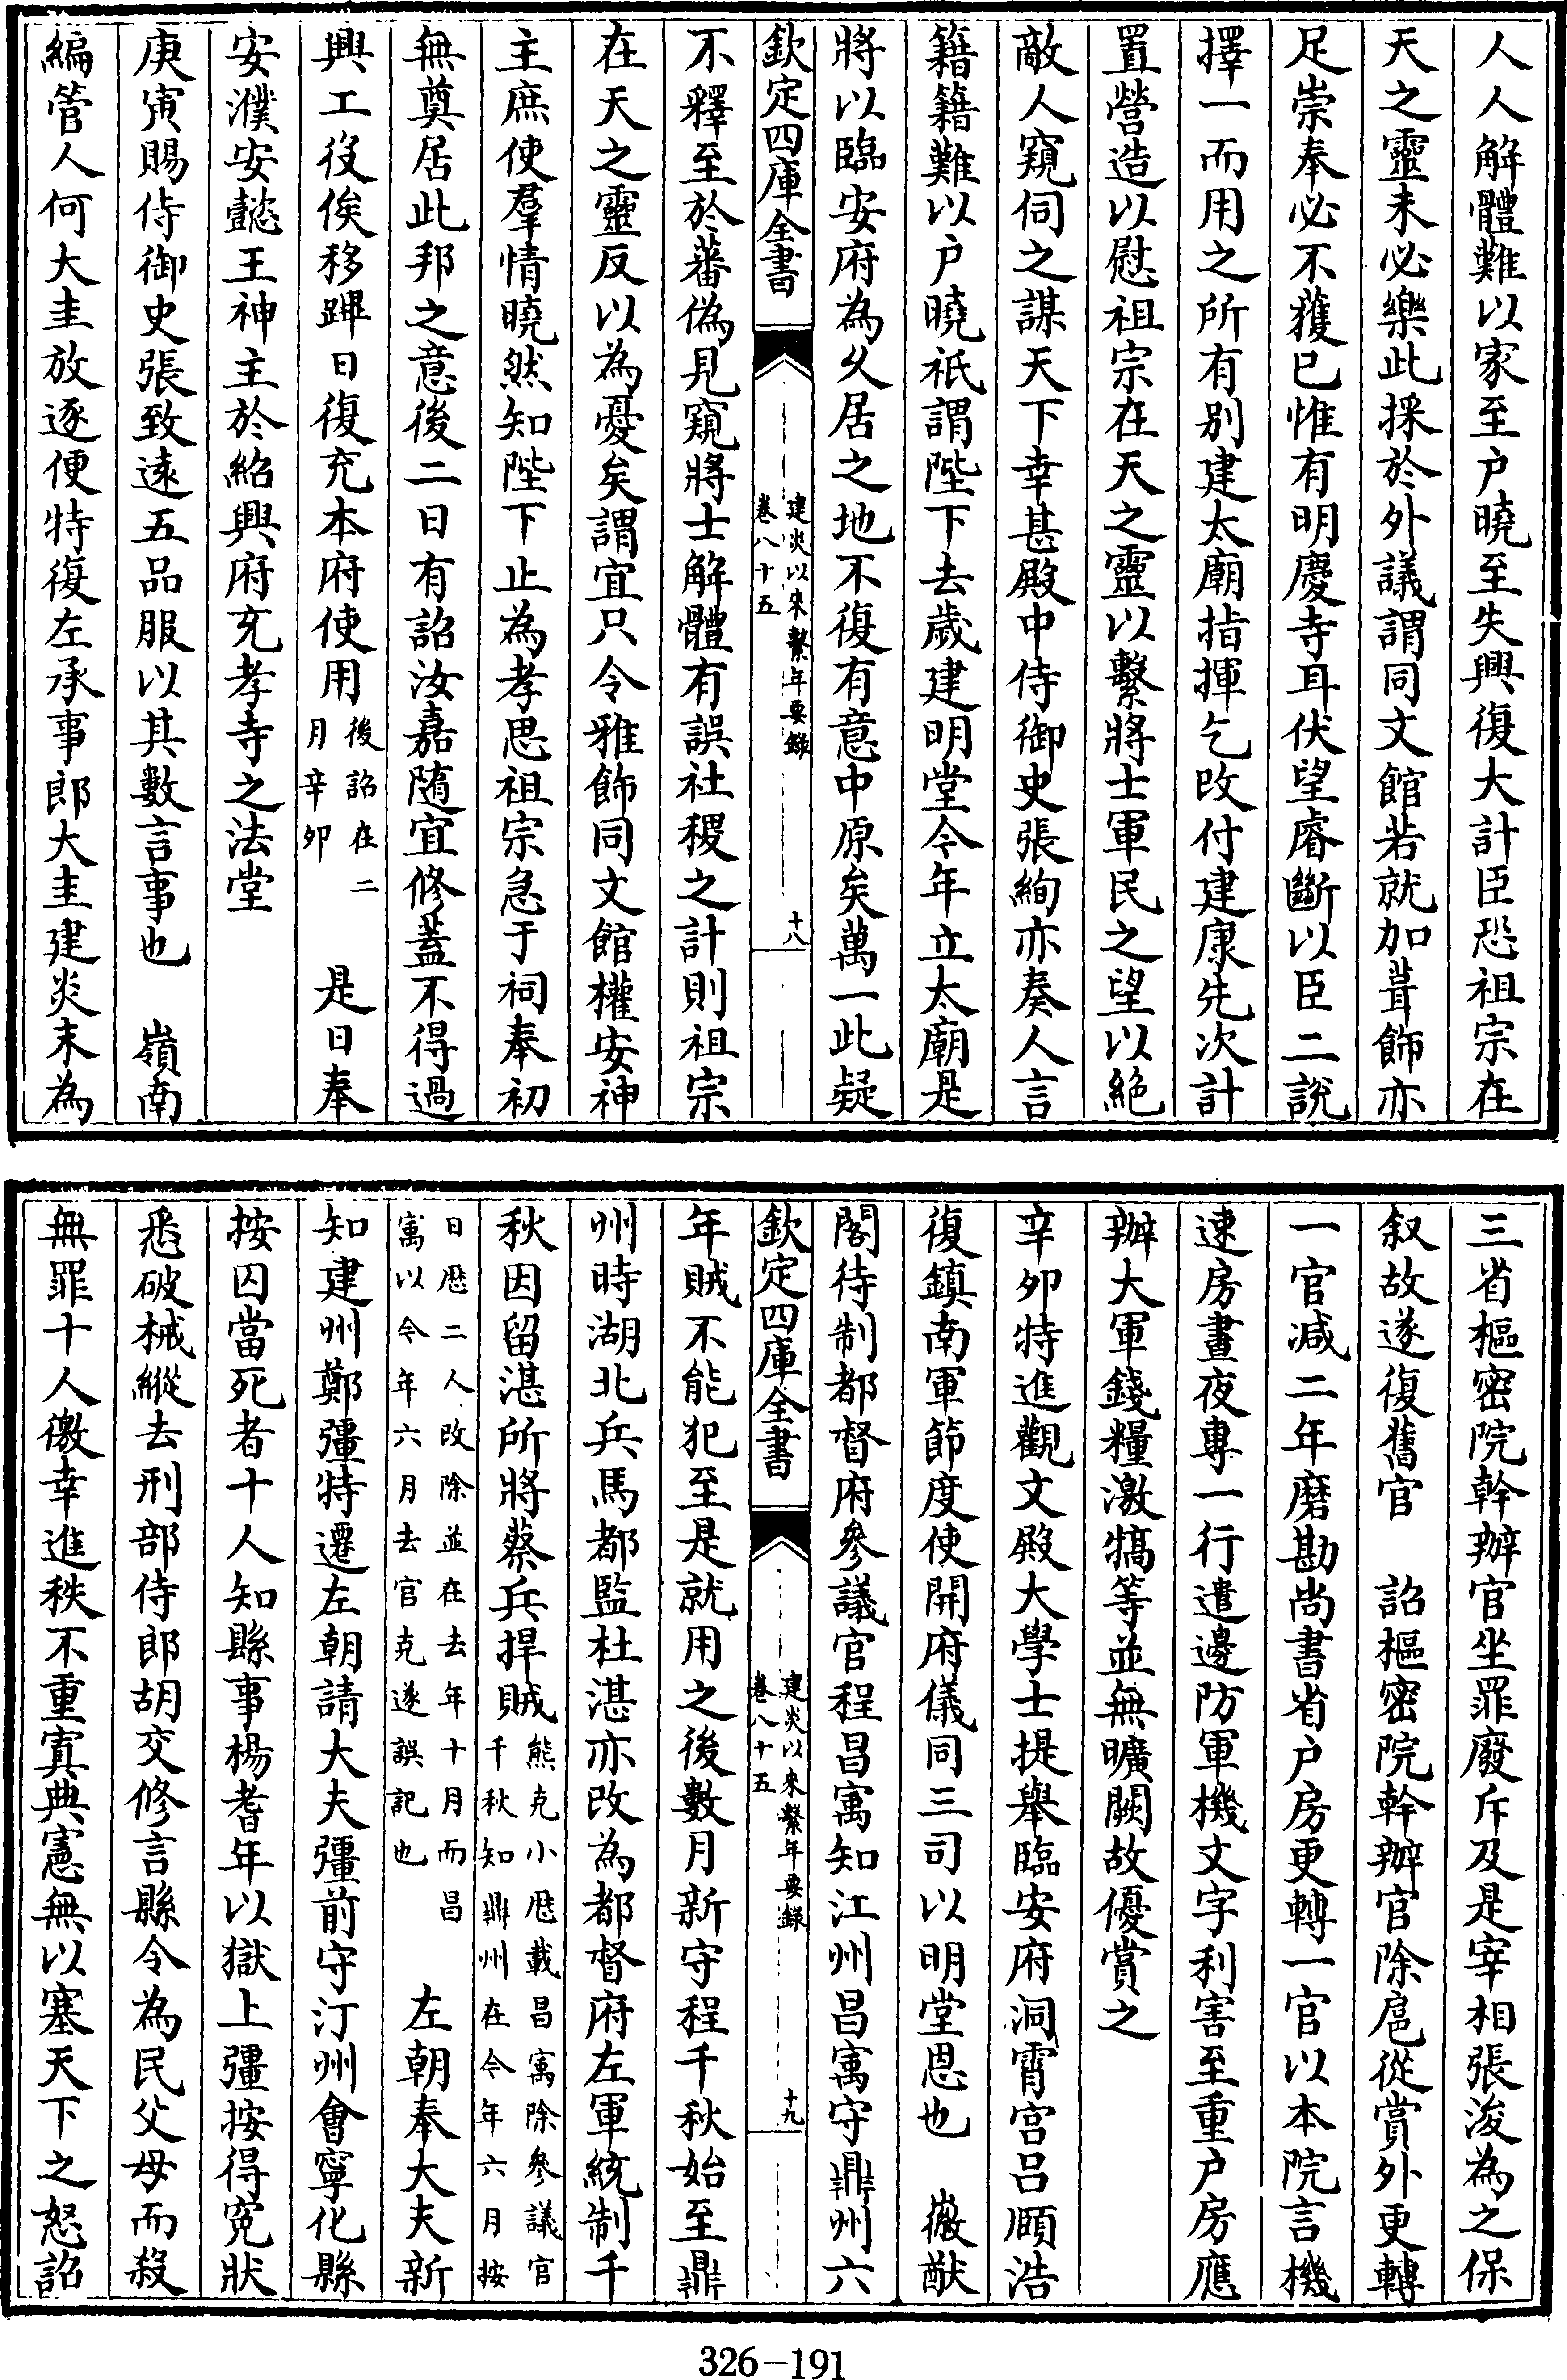 人人解體難以家至户曉至失興復大計臣恐祖宗在
天之靈未必樂此採於外議謂同文館若就加葺飾亦
足崇奉必不獲已惟有明慶寺耳伏望睿斷以臣二說
擇一而用之所有别建太廟指揮乞改付建康先次計
置營造以慰祖宗在天之靈以繫將士軍民之望以絶
敵人窺伺之謀天下幸甚殿中侍御史張絢亦奏人言
籍籍難以户曉祇謂陛下去歲建明堂今年立太廟是
將以臨安府為乆居之地不復有意中原矣萬一此疑
欽定四庫全書
建炎以來繫年要錄
卷八十五
十八
不釋至於蕃偽見窺將士解體有誤社稷之計則祖宗
在天之靈反以為憂矣謂宜只令雅飾同文館權安神
主庶使羣情曉然知陛下止為孝思祖宗急于祠奉初
無奠居此邦之意後二日有詔汝嘉随宜修蓋不得過
興工役俟移蹕日復充本府使用
後詔在二
月辛卯
是日奉
安濮安懿王神主於紹興府充孝寺之法堂
庚寅賜侍御史張致逺五品服以其數言事也　嶺南
編管人何大圭放逐便特復左承事郎大圭建炎末為
三省樞密院幹辦官坐罪廢斥及是宰相張浚為之保
叙故遂復舊官　詔樞密院幹辦官除扈從賞外更轉
一官减二年磨勘尚書省户房更轉一官以本院言機
速房晝夜專一行遣邊防軍機文字利害至重户房應
辦大軍錢糧激犒等並無曠闕故優賞之
辛夘特進觀文殿大學士提舉臨安府洞霄宫吕頤浩
復鎮南軍節度使開府儀同三司以明堂恩也　徽猷
閣待制都督府參議官程昌寓知江州昌寓守鼎州六
欽定四庫全書
建炎以來繫年要錄
卷八十五
十九
年賊不能犯至是就用之後數月新守程千秋始至鼎
州時湖北兵馬都監杜湛亦改為都督府左軍統制千
秋因留湛所將蔡兵捍賊
熊克小厯載昌寓除參議官
千秋知鼎州在今年六月按
日厯二人改除並在去年十月而昌
寓以今年六月去官克遂誤記也
左朝奉大夫新
知建州鄭彊特遷左朝請大夫彊前守汀州會寧化縣
按囚當死者十人知縣事楊耆年以獄上彊按得寃狀
悉破械縱去刑部侍郎胡交修言縣令為民父母而殺
無罪十人徼幸進秩不重寘典憲無以塞天下之怒詔
326-191